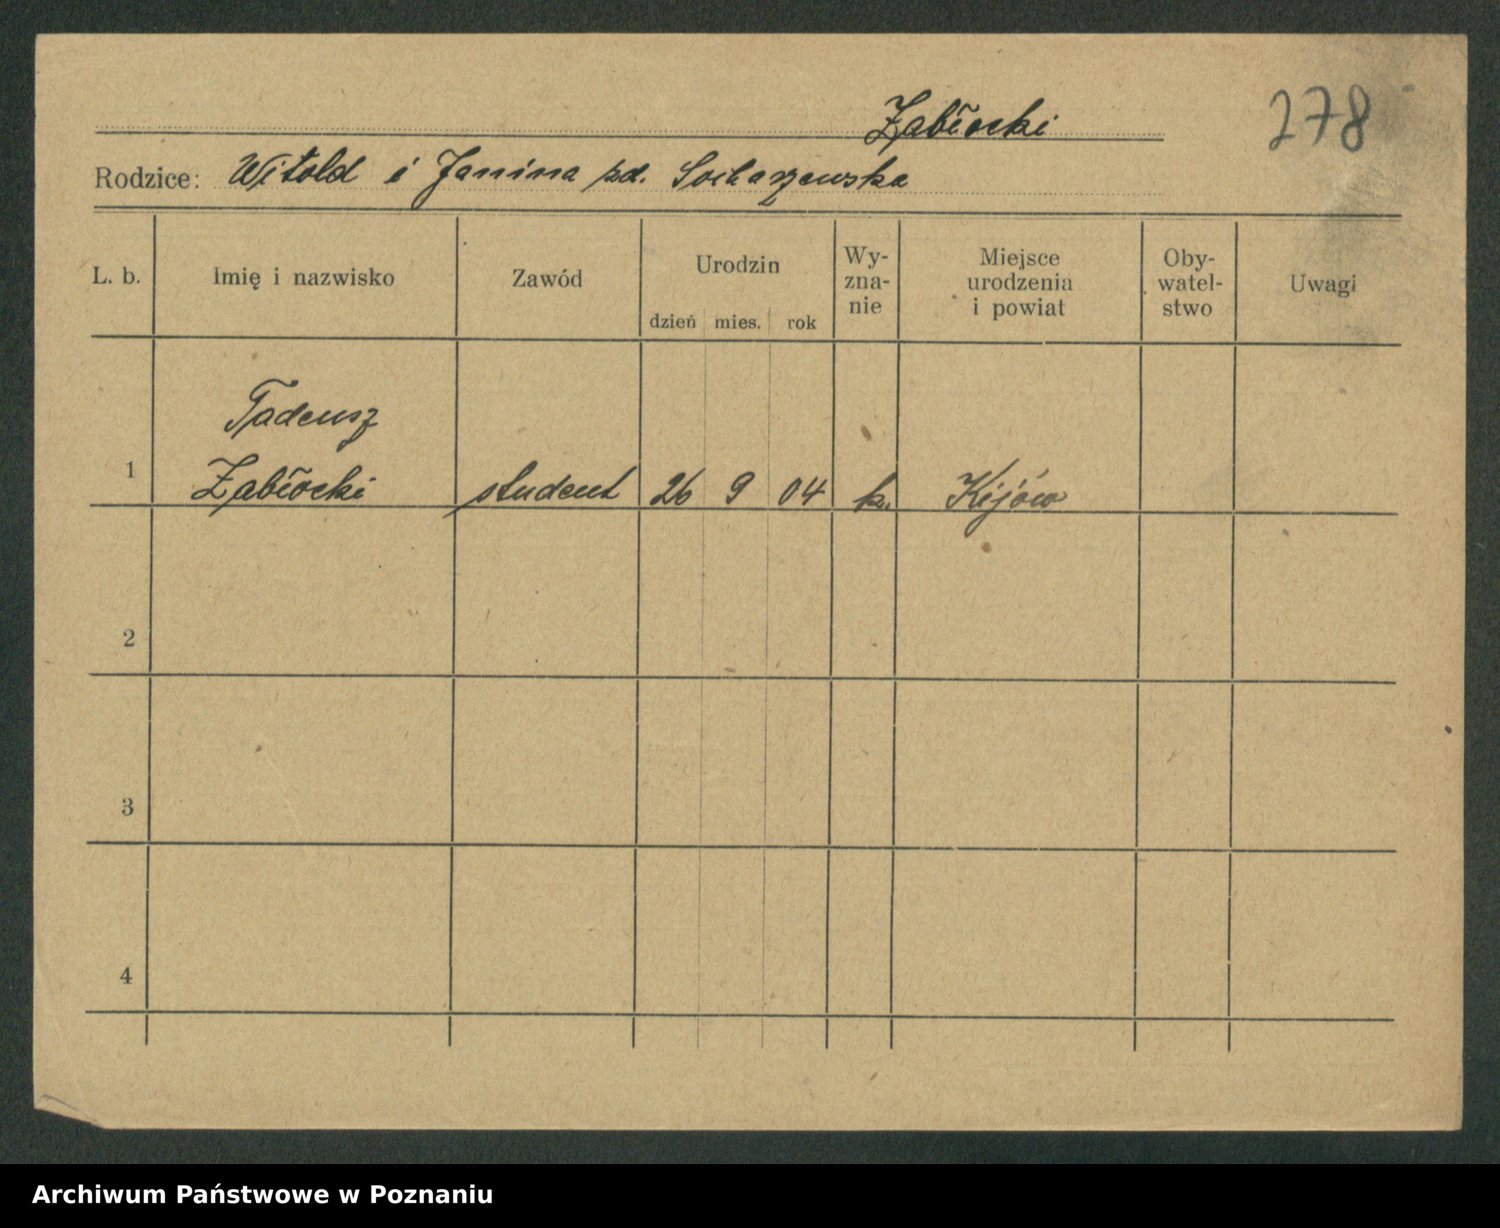 Zabłocki
278
Rodzice: Witold i Janina zd. Sochaczewska
L. b.
Imię i nazwisko
Zawód
Urodzin
dzień mies. rok
Wy-
zna-
nie
Miejsce
urodzenia
i powiat
Oby-
watel-
stwo
Uwagi
Tadeusz
1 Zabłocki student 26 9 04 k. Kijów
2
3
4
Archiwum Państwowe w Poznaniu